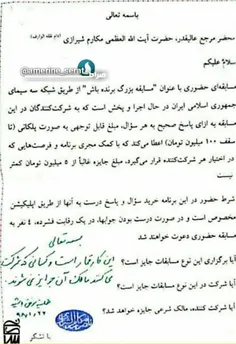 باسمه تعالی
محضر مرجع عالیقدر، حضرت آیت الله العظمی مکارم شیرازی (دام ظله الوارف)
@amerine_semi
سلامٌ علیکم
مسابقه‌ای حضوری با عنوان "مسابقه بزرگ برنده باش" از طریق شبکه سه سیمای
جمهوری اسلامی ایران در حال اجرا و پخش است که به شرکت‌کنندگان در این
مسابقه به ازای پاسخ صحیح به هر سؤال، مبلغ قابل توجهی به صورت پلکانی (تا
سقف ۱۰۰ میلیون تومان) اعطا می‌کند که با کمک مجری برنامه و فرصت‌هایی که
در اختیار هر شرکت‌کننده قرار می‌گیرد، مبلغ جایزه غالباً از ۵ میلیون تومان کمتر
نیست
شرط حضور در این برنامه خرید سؤال و پاسخ درست به آنها از طریق اپلیکیشن
مخصوص است و در صورت درست بودن جوابها، در یک رقابت فشرده، ٤ نفر به
مسابقه حضوری دعوت خواهند شد
آیا برگزاری این نوع مسابقات جایز است؟
آیا شرکت در این نوع مسابقات جایز است؟
آیا شرکت کننده، مالک شرعی جایزه خواهد شد؟
با تشکر
بسمه تعالی
این کار قمار است و کسانی که شرکت
می‌کنند مالک آن جوایز نمی‌شوند